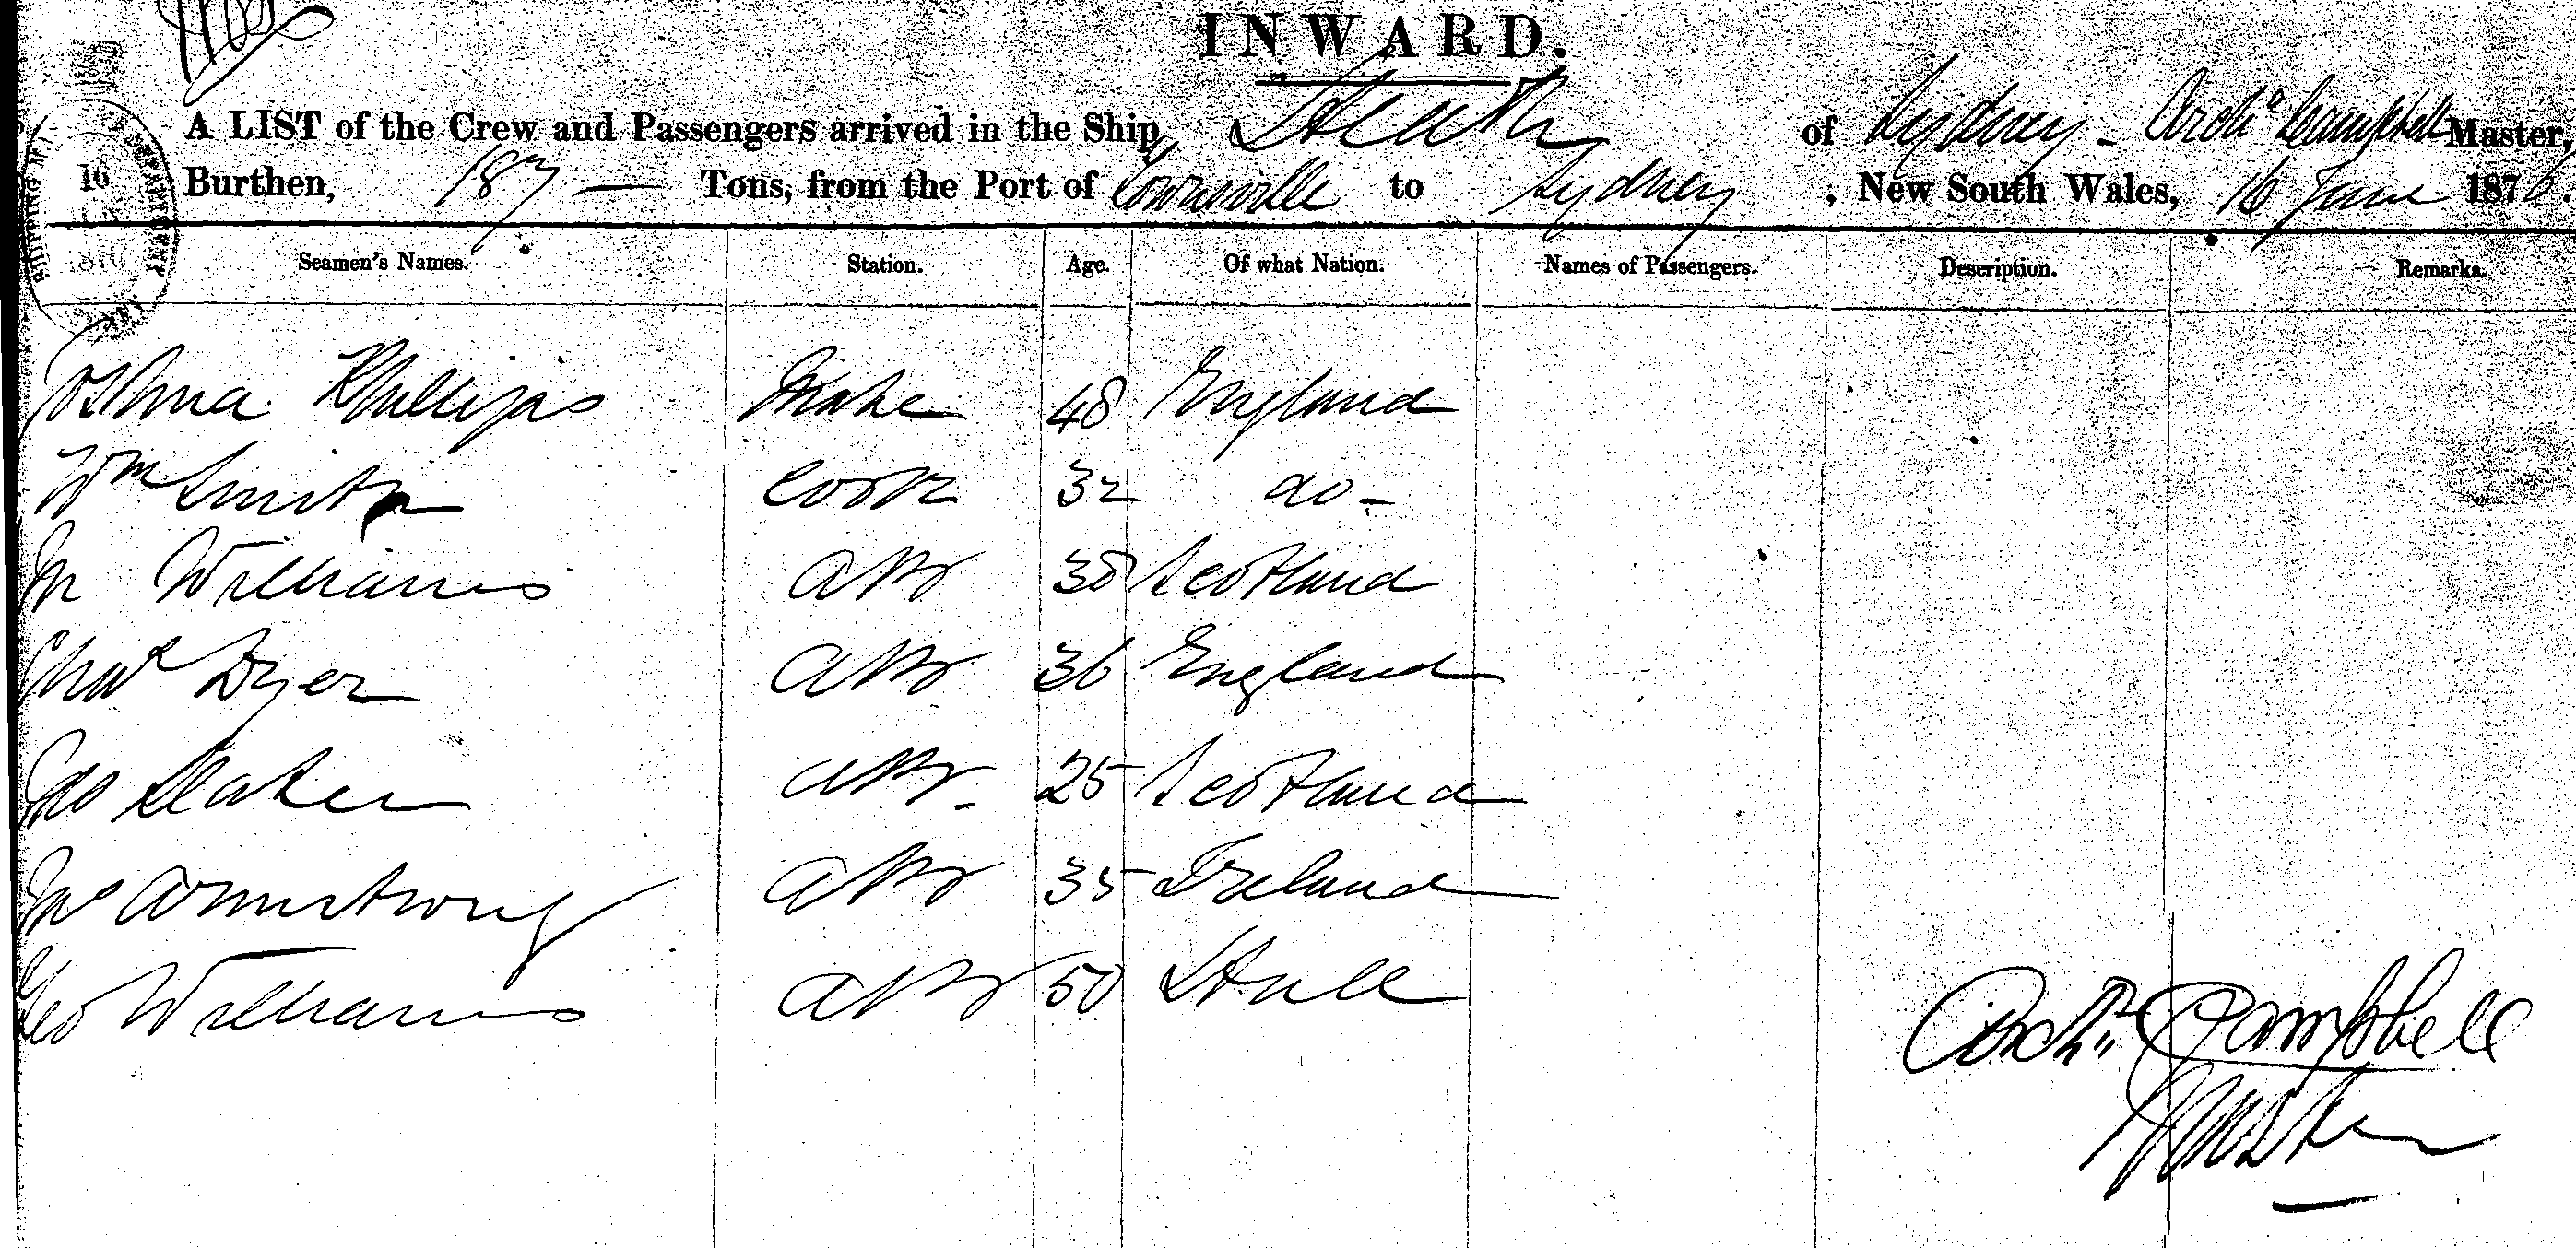 INWARD.
A LIST of the Crew and Passengers arrived in the Ship Heath of Sydney - Archd Campbell Master,
Burthen, 187 — Tons, from the Port of Townsville to Sydney, New South Wales, 16 June 1876.
Seamen's Names. Station. Age. Of what Nation. Names of Passengers. Description. Remarks.
Joshua Phillips Mate 48 England
Wm Smith Cook 32 do -
Williams AB 38 Scotland
Chas Dyer AB 36 England
AB 25 Scotland
Jno Armstrong AB 35 Ireland
Geo Williams AB 50 Hull
Archd Campbell
Master
16